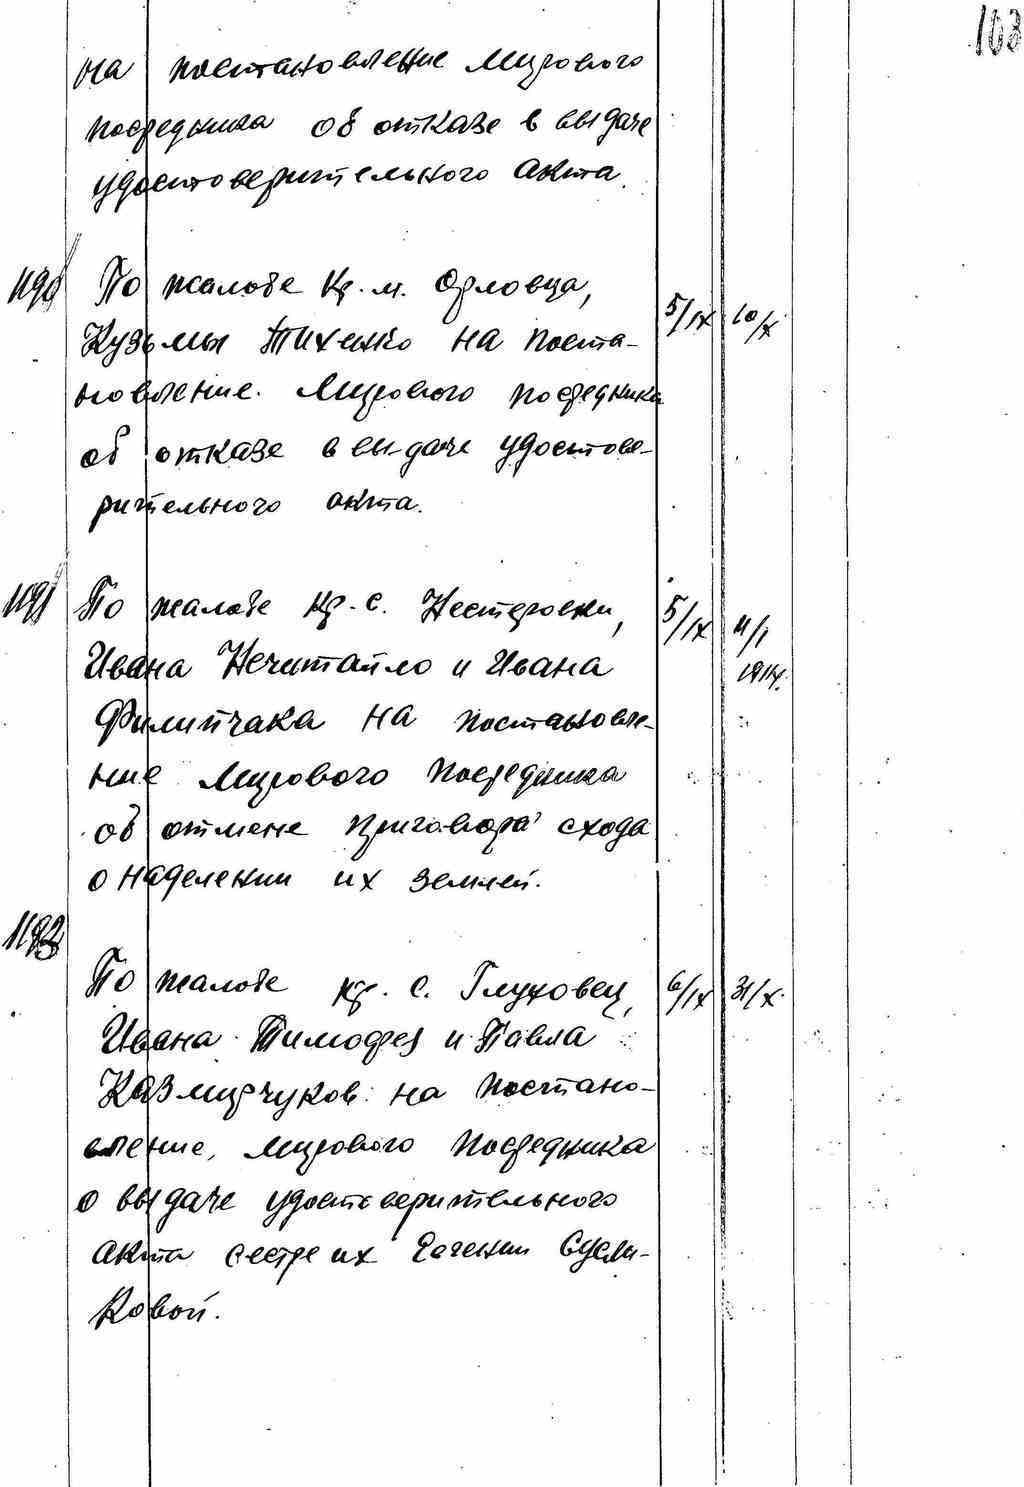 103
на постановление Мирового
посредника об отказе в выдаче
удостоверительного акта.
1190 По жалобе Кр. м. Орловца, 5/IX 10/X
Кузьмы Тихенко на поста-
новление Мирового посредника
об отказе в выдаче удостове-
рительного акта.
1191 По жалобе кр. с. Нестеровки, 5/IX 11/I
Ивана Нечитайло и Ивана 1914.
Филипчака на постановле-
ние Мирового посредника
об отмене приговора схода
о наделении их землей.
1192
По жалобе кр. с. Глуховец, 6/IX 31/X
Ивана Тимофея и Павла
Казмирчуков на постано-
вление, мирового посредника
о выдаче удостоверительного
акта сестре их Евгении Сусли-
ковой.